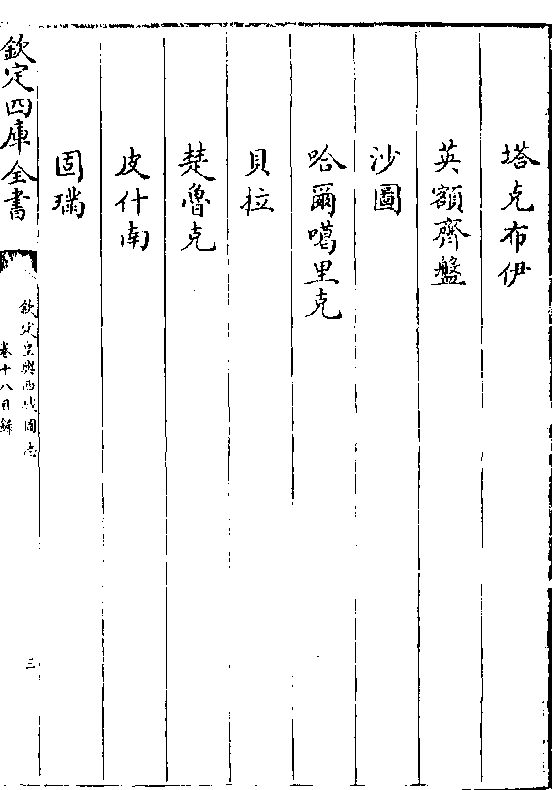 塔克布伊
英額齊盤
沙圖
哈爾噶里克
貝拉
楚魯克
皮什南
固璊
欽定四庫全書
欽定皇輿西域圖志
卷十八目錄
三